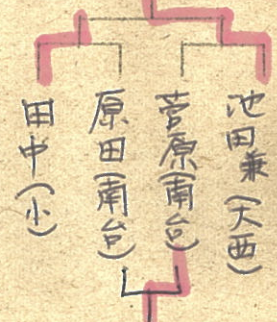 池田兼(大西)
菅原(南台)
原田(南台)
田中(小)